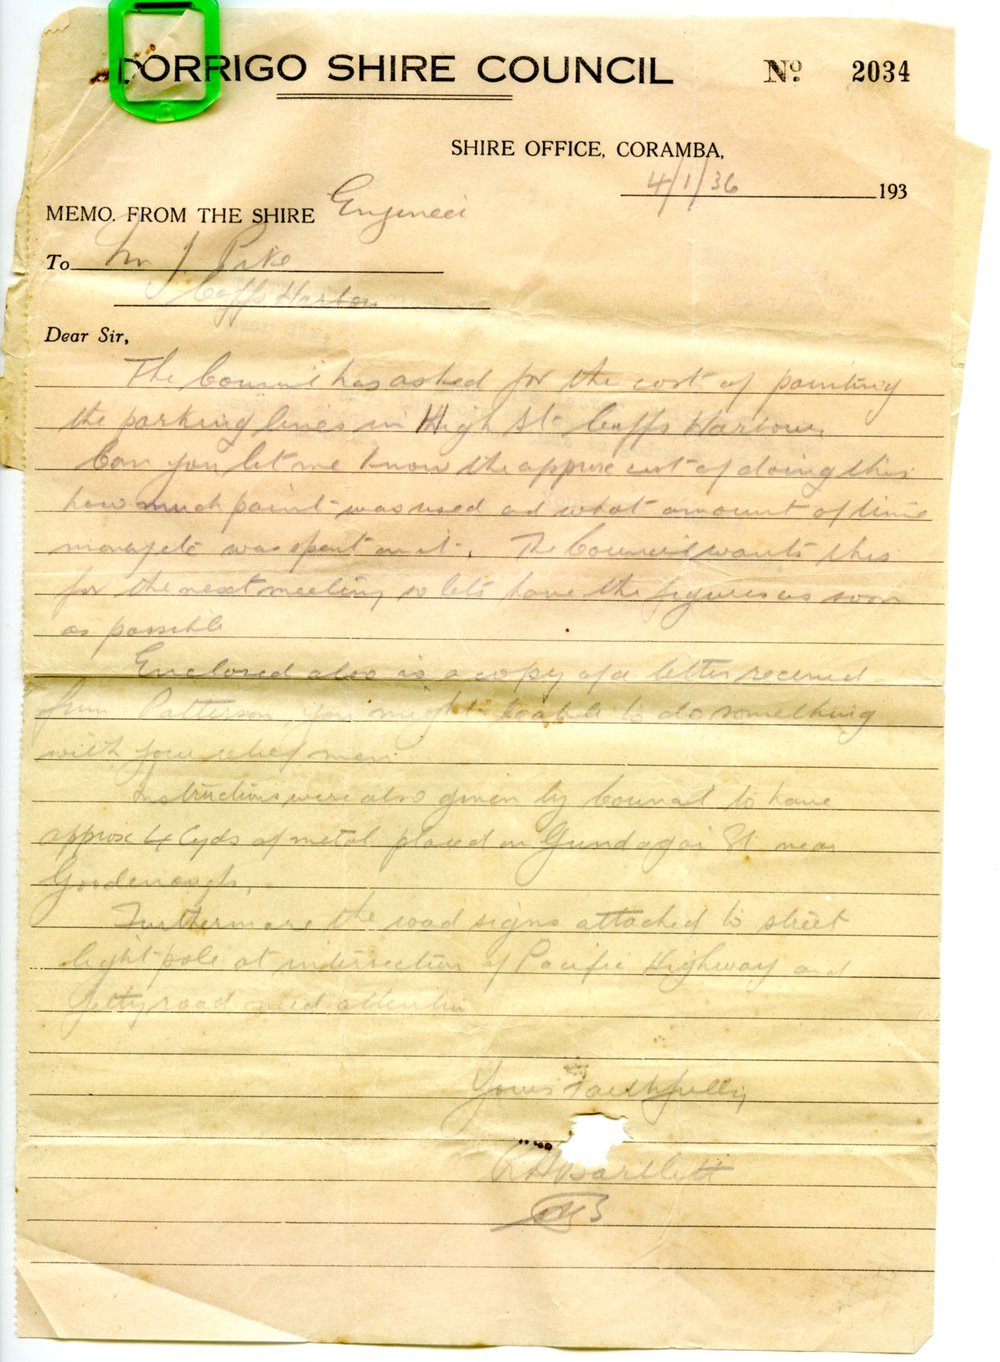 DORRIGO SHIRE COUNCIL
No 2034
SHIRE OFFICE, CORAMBA,
4/1/36 193
MEMO. FROM THE SHIRE Engineer
To Mr J. Pike
Coffs Harbour
Dear Sir,
The Council has asked for the cost of painting
the parking lines in High St Coffs Harbour.
Can you let me know the approx cost of doing this
how much paint was used and what amount of time
was spent on it. The Council wants this
for the next meeting so lets have the figures as soon
as possible
Enclosed also is a copy of a letter received
from Patterson, you might be able to do something
with your relief men.
Instructions were also given by Council to have
approx 4 Cyds of metal placed on Gundagai St near
Goodenough.
Furthermore the road signs attached to street
light pole at intersection of Pacific Highway and
Jetty road need attention
Yours Faithfully
Bartlett